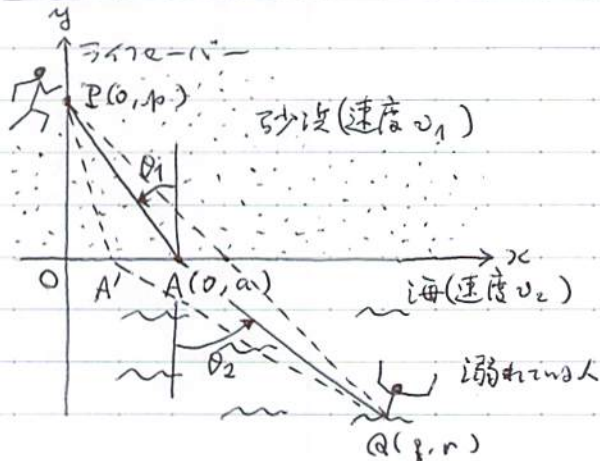 y
ライフセーバー
P(0, p)
砂浜(速度v₁)
θ₁
O
A'
A(0, a)
x
海(速度v₂)
θ₂
溺れている人
Q(q, r)